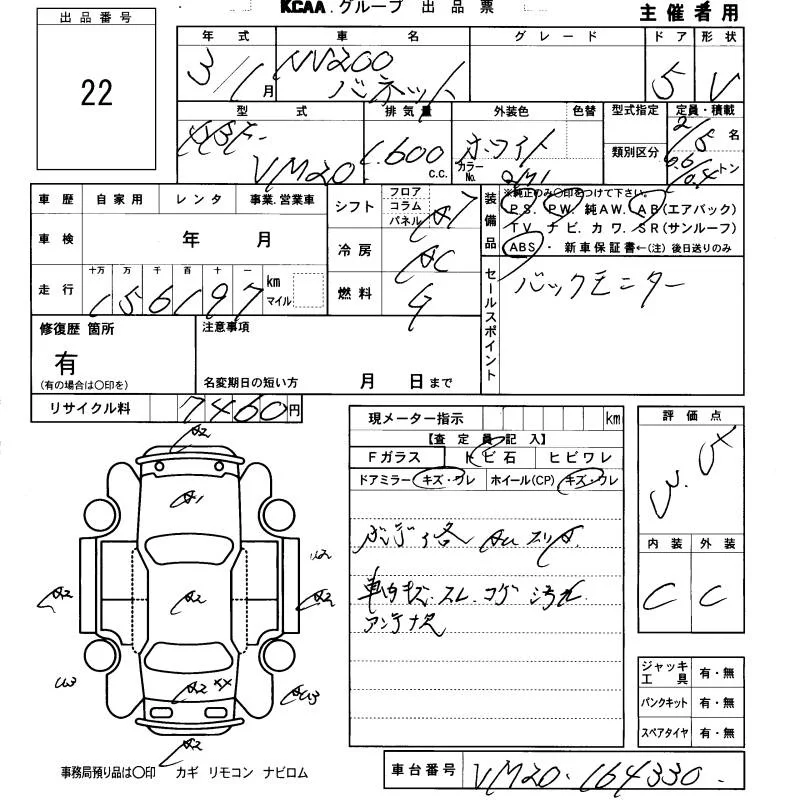 KCAA.グループ 出品票
主催者用
出品番号
22
年式 車名 グレード ドア 形状
3/1月 NV200 バネット 5 V
型式 排気量 外装色 色替 型式指定 定員・積載
VM20 1,600 c.c. ホワイト カラーNo. 類別区分 2/5名
0.6/0.4トン
車歴 自家用 レンタ 事業.営業車
車検 年 月
走行 十万 万 千 百 十 一 km マイル
156197
シフト フロア コラム パネル A7
冷房 AC
燃料 G
装備品
※純正のみ〇印をつけて下さい。
P S. P W. 純A W. A B(エアバック)
T V ナビ. カワ. S R(サンルーフ)
ABS・ 新車保証書←(注)後日送りのみ
セールスポイント
バックモニター
修復歴 箇所
有
(有の場合は〇印を)
注意事項
名変期日の短い方 月 日まで
リサイクル料 7460円
現メーター指示 km
【査定員記入】
Fガラス トビ石 ヒビワレ
ドアミラー キズ・ワレ ホイール(CP) キズ・ワレ
車内キズ.スレ.コゲ 汚れ.
アンテナ欠
評価点
3.5
内装 外装
C C
A2
A1
U2
A2 A2 A2
U3 A2 XX
A2
ジャッキ工具 有・無
パンクキット 有・無
スペアタイヤ 有・無
事務局預り品は〇印 カギ リモコン ナビロム
車台番号 VM20-164330